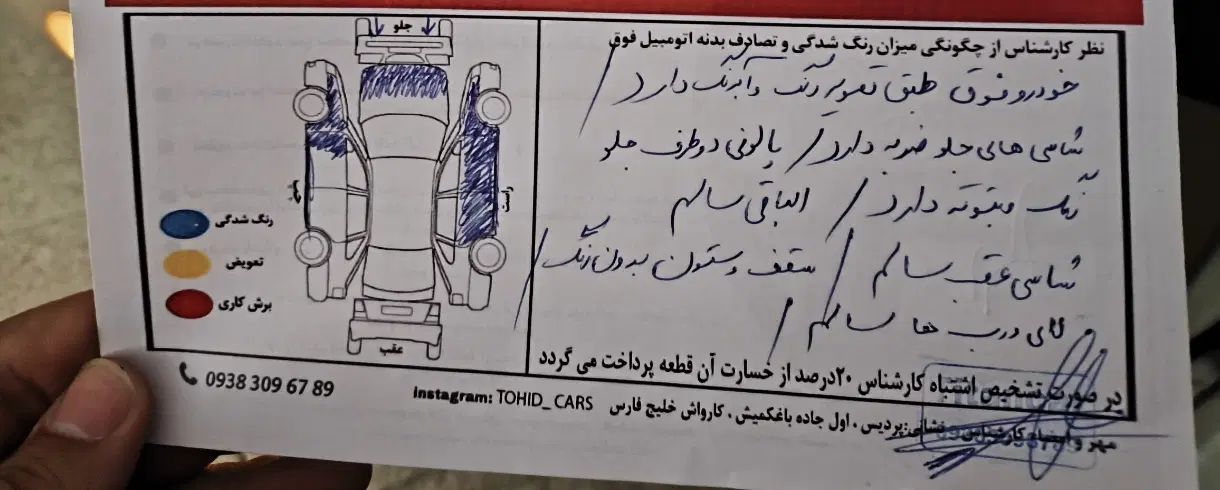 نظر کارشناس از چگونگی میزان رنگ شدگی و تصادف بدنه اتومبیل فوق
خودرو فوق طبق تصویر رنگ و آبرنگ دارد /
شاسی های جلو ضربه دارد / پالونی دو طرف جلو
رنگ دارد / الباقی سالم
شاسی عقب سالم / سقف و ستون بدون رنگ /
لای درب ها سالم /
در صورت تشخیص اشتباه کارشناس ۲۰درصد از خسارت آن قطعه پرداخت می گردد
جلو
راست
عقب
رنگ شدگی
تعویضی
برش کاری
0938 309 67 89
instagram: TOHID_CARS
نشانی:پردیس ، اول جاده باغکمیش ، کارواش خلیج فارس
مهر و امضاء کارشناس